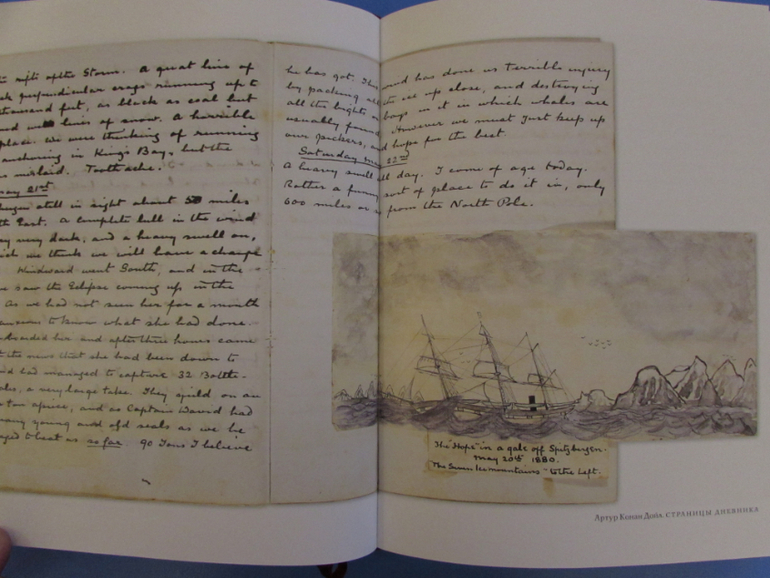 of the Storm. A great line of
perpendicular crags running up to
thousand feet, as black as coal but
lines of snow. A horrible
place. we were thinking of running
anchoring in King's Bay, but the
mislaid. Toothache.
May 21st
still in sight about 50 miles
East. A complete lull in the wind
very dark, and a heavy swell on,
we think we will have a change
Windward went South, and in the
saw the Eclipse coming up in the
As we had not seen her for a month
to know what she had done.
boarded her and after three hours came
the news that she had been down to
and had managed to capture 32 Bottle-
a very large take. They yield on an
and as Captain David had
many young and old seals as we he
to beat us so far. 90 Tons I believe
he has got. This wind has done us terrible injury
by packing all the ice up close, and destroying
all the bights or bays in it in which whales are
usually found. However we must just keep up
our peckers, and hope for the best.
Saturday May 22nd
A heavy swell all day. I come of age today.
Rather a funny sort of place to do it in, only
600 miles or so from the North Pole.
The "Hope" in a gale off Spitzbergen.
May 20th 1880.
The Seven Ice mountains to the Left.
Артур Конан Дойл. СТРАНИЦЫ ДНЕВНИКА